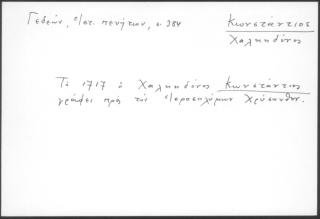 Γεδεών, Ἱστ. πενήτων, σ. 384
Κωνστάντιος
Χαλκηδόνος
Τὸ 1717 ὁ Χαλκηδόνος Κωνστάντιος
γράφει πρὸς τὸν Ἱεροσολύμων Χρύσανθον.